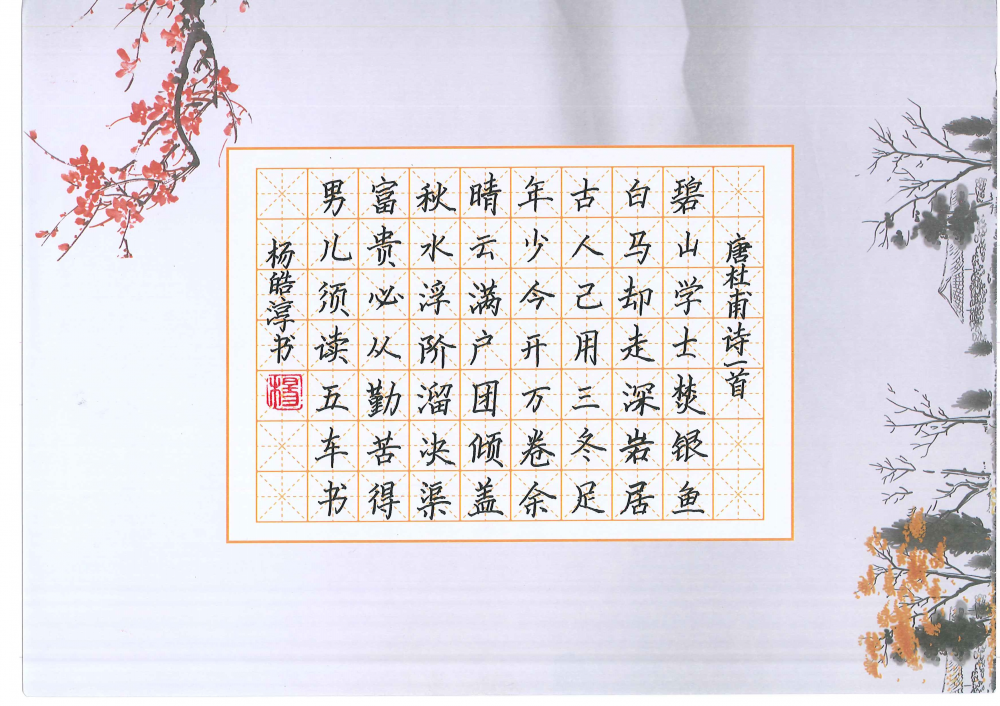 唐杜甫诗一首
碧山学士焚银鱼
白马却走深岩居
古人己用三冬足
年少今开万卷余
晴云满户团倾盖
秋水浮阶溜决渠
富贵必从勤苦得
男儿须读五车书
杨皓淳书
杨